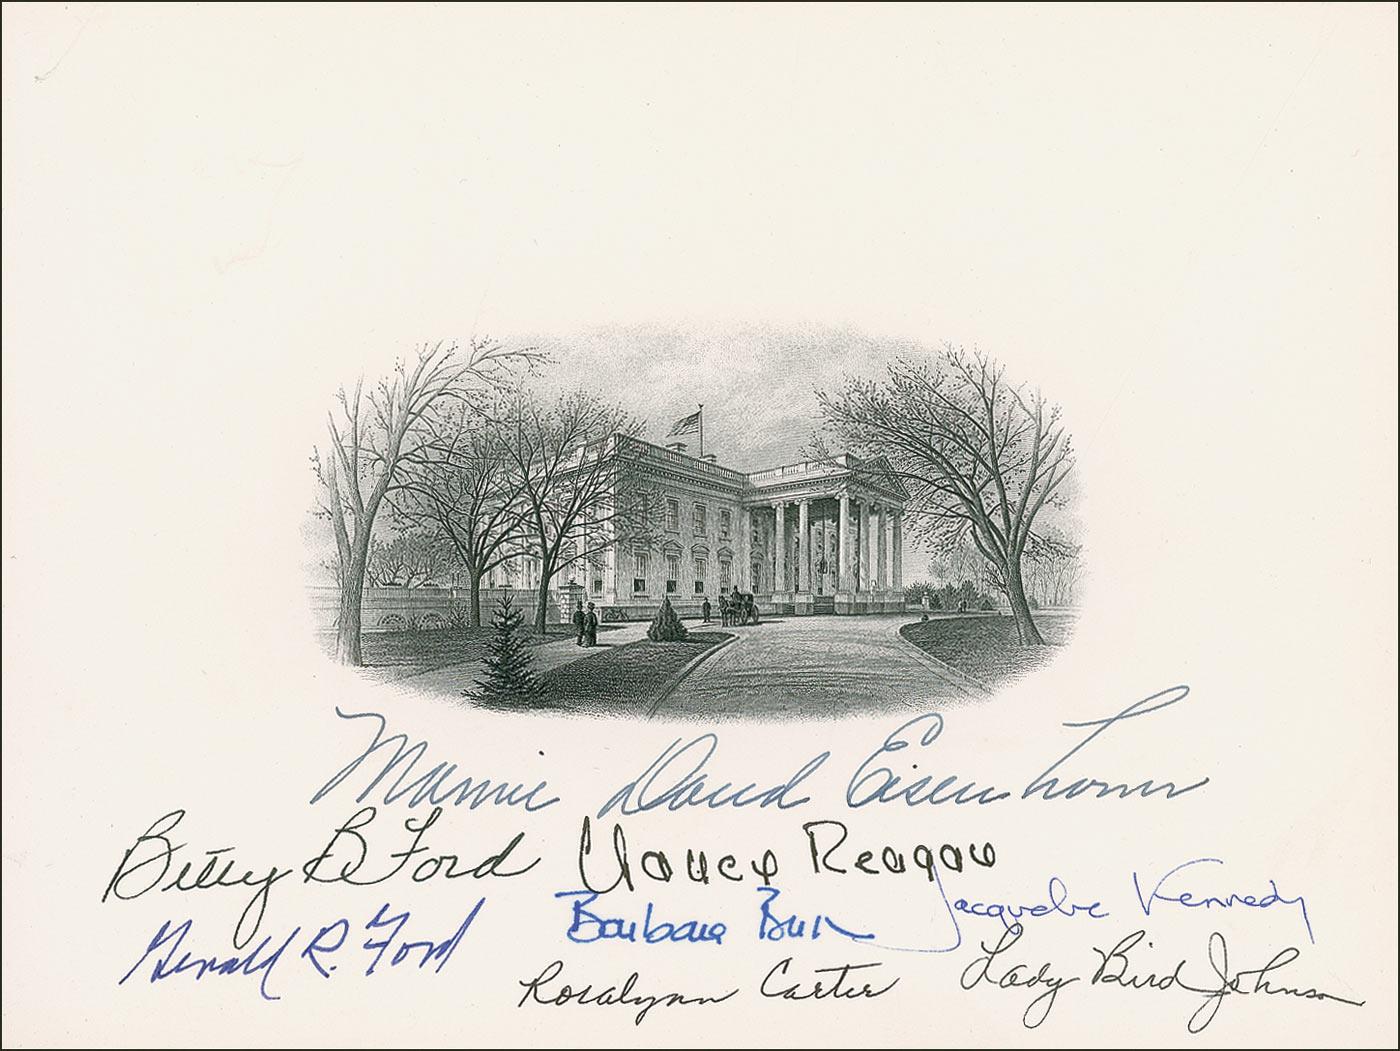 Mamie Doud Eisenhower
Betty B Ford
Nancy Reagan
Jacqueline Kennedy
Gerald R. Ford
Barbara Bush
Rosalynn Carter
Lady Bird Johnson